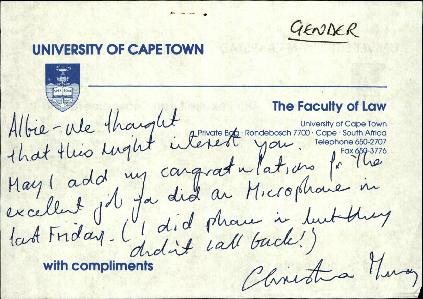 GENDER
UNIVERSITY OF CAPE TOWN
The Faculty of Law
University of Cape Town
Private Bag · Rondebosch 7700 · Cape · South Africa
Telephone 650-2707
Fax 650-3776
Albie - We thought
that this might interest you.
May I add my congratulations for the
excellent job you did on Microphone in
last Friday. (I did phone in but they
didn't call back!)
with compliments
Christina Murray